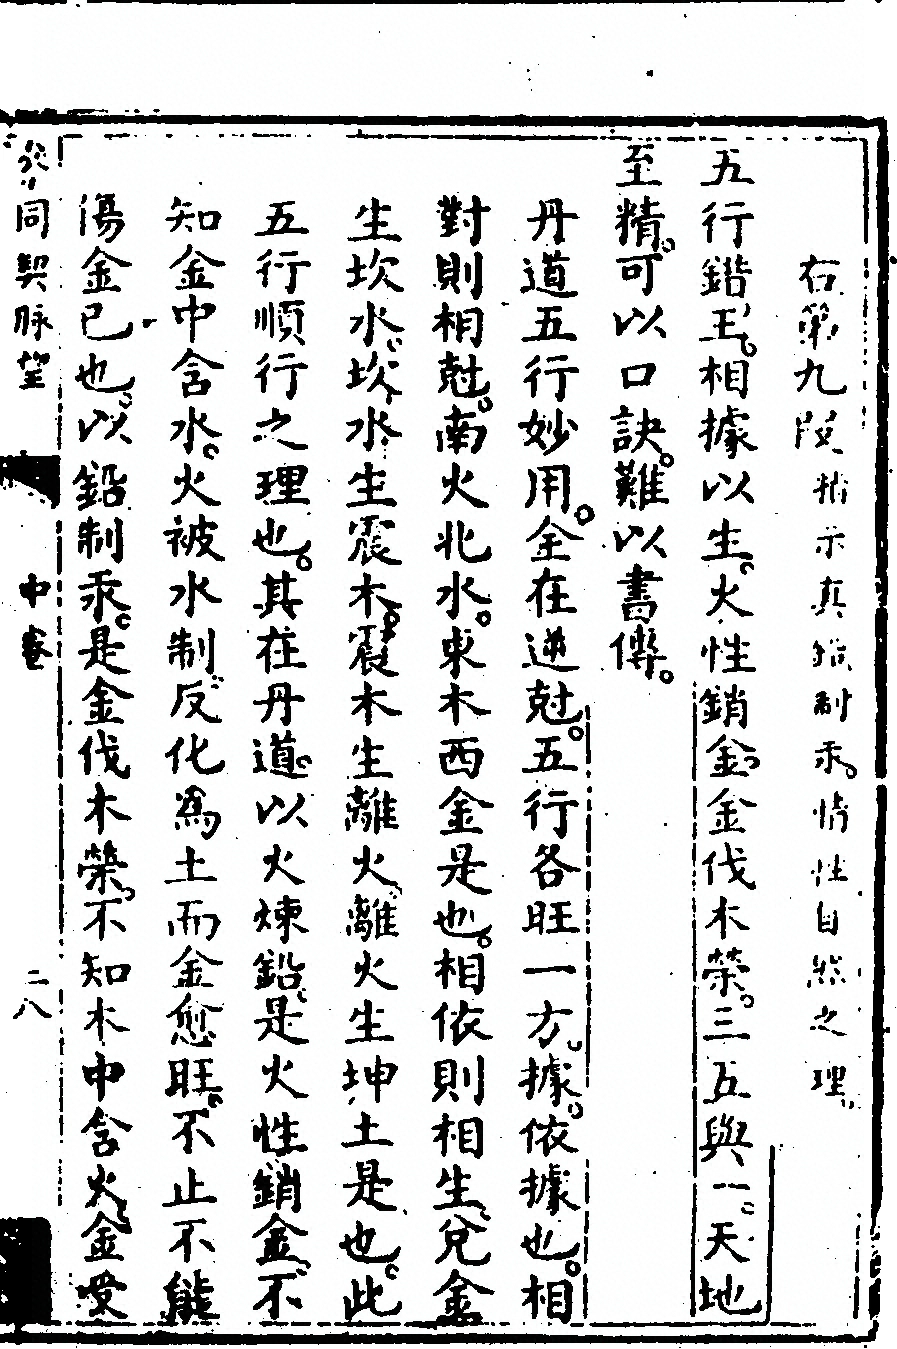 右第九段指示真鉛制汞。情性自然之理。
五行錯王。相據以生。火性銷金。金伐木榮。三五與一。天地
至精。可以口訣。難以書傳。
丹道五行妙用。全在逆尅。五行各旺一方。據。依據也。相
對則相尅。南火北水。東木西金是也。相依則相生。兌金
生坎水。坎水生震木。震木生離火。離火生坤土是也。此
五行順行之理也。其在丹道。以火煉鉛。是火性銷金。不
知金中含水。火被水制。反化為土而金愈旺。不止不能
傷金已也。以鉛制汞。是金伐木榮。不知木中含火。金受
參同契脉望
中卷
二八